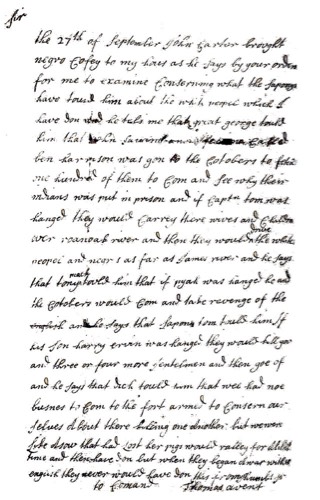 Sir
the 27th of September John Carter brought
negro Cofey to my hows as he says by your order
for me to examine Conserning what the Sapone
have tould him about the whit pepel which I
have don and he tels me that great george tould
him that John Sawind and
ben harrison was gon to the Cotobers to fetch
me hundred of them to Com and See why their
indians was put in prison and if Capta tom was
hanged they would Carrey there wives and Childrn
over roanoak river and then they would drive the white
peopel and negrs as far as James river and he says
that tony mack tould him that if pyah was hanged he and
the Cotobers would Com and take revenge of the
english and he says that Sapony tom tould him If
his Son harry ervan was hanged they would kill you
and three or four more gentelmen and then goe of
and he says that dick tould him that wee had noe
busnes to Com to the fort armed to Consern our
selves about there killing one another but
that had lost her pigs would rattey for a little
time and then have don but when they began a war with the
english they never would have don this from your humbl sr
to Comand Thomas Avent